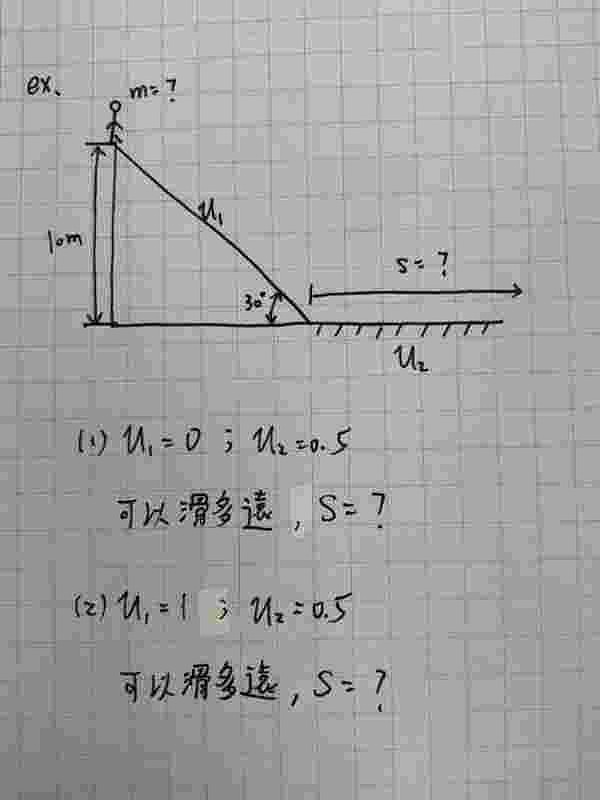 ex.
m=?
10m
u₁
30°
s=?
u₂
(1) u₁=0 ; u₂=0.5
可以滑多遠, S=?
(2) u₁=1 ; u₂=0.5
可以滑多遠, S=?